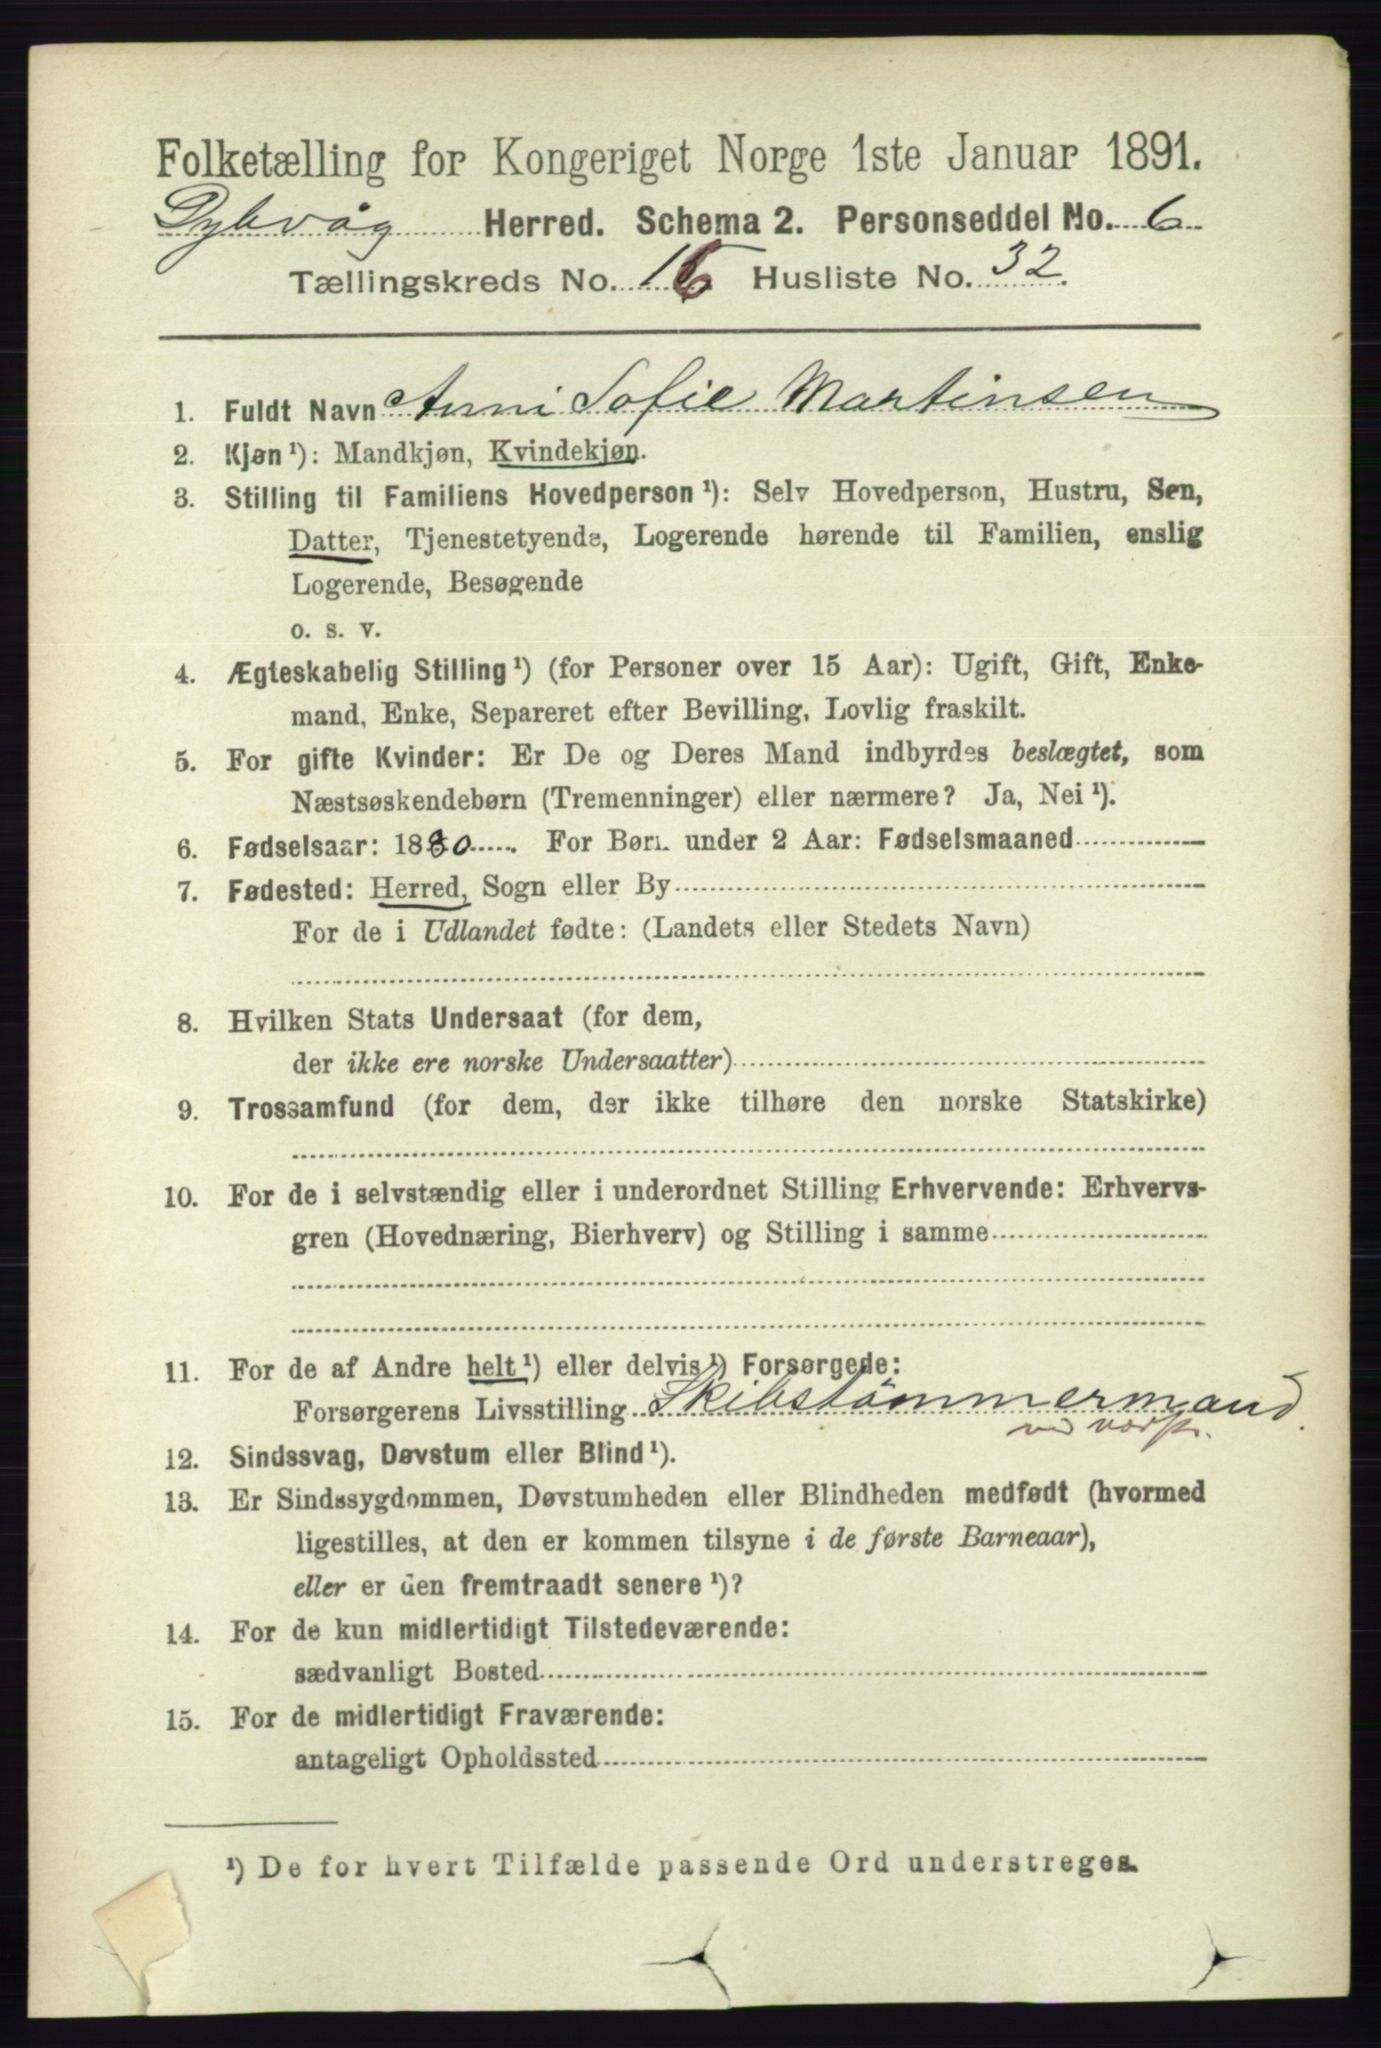 Folketælling for Kongeriget Norge 1ste Januar 1891.
Dybvåg Herred. Schema 2. Personseddel No. 6
Tællingskreds No. 16 Husliste No. 32.
1. Fuldt Navn Anni Sofie Martinsen
2. Kjøn ¹): Mandkjøn, Kvindekjøn.
3. Stilling til Familiens Hovedperson ¹): Selv Hovedperson, Hustru, Søn,
Datter, Tjenestetyende, Logerende hørende til Familien, enslig
Logerende, Besøgende
o. s. v.
4. Ægteskabelig Stilling ¹) (for Personer over 15 Aar): Ugift, Gift, Enke-
mand, Enke, Separeret efter Bevilling, Lovlig fraskilt.
5. For gifte Kvinder: Er De og Deres Mand indbyrdes beslægtet, som
Næstsøskendebørn (Tremenninger) eller nærmere? Ja, Nei ¹).
6. Fødselsaar: 1880. For Børn under 2 Aar: Fødselsmaaned
7. Fødested: Herred, Sogn eller By
For de i Udlandet fødte: (Landets eller Stedets Navn)
8. Hvilken Stats Undersaat (for dem,
der ikke ere norske Undersaatter)
9. Trossamfund (for dem, der ikke tilhøre den norske Statskirke)
10. For de i selvstændig eller i underordnet Stilling Erhvervende: Erhvervs-
gren (Hovednæring, Bierhverv) og Stilling i samme
11. For de af Andre helt ¹) eller delvis ¹) Forsørgede:
Forsørgerens Livsstilling Skibstömmermand.
ved
12. Sindssvag, Døvstum eller Blind ¹).
13. Er Sindssygdommen, Døvstumheden eller Blindheden medfødt (hvormed
ligestilles, at den er kommen tilsyne i de første Barneaar),
eller er den fremtraadt senere ¹)?
14. For de kun midlertidigt Tilstedeværende:
sædvanligt Bosted
15. For de midlertidigt Fraværende:
antageligt Opholdssted
¹) De for hvert Tilfælde passende Ord understreges.